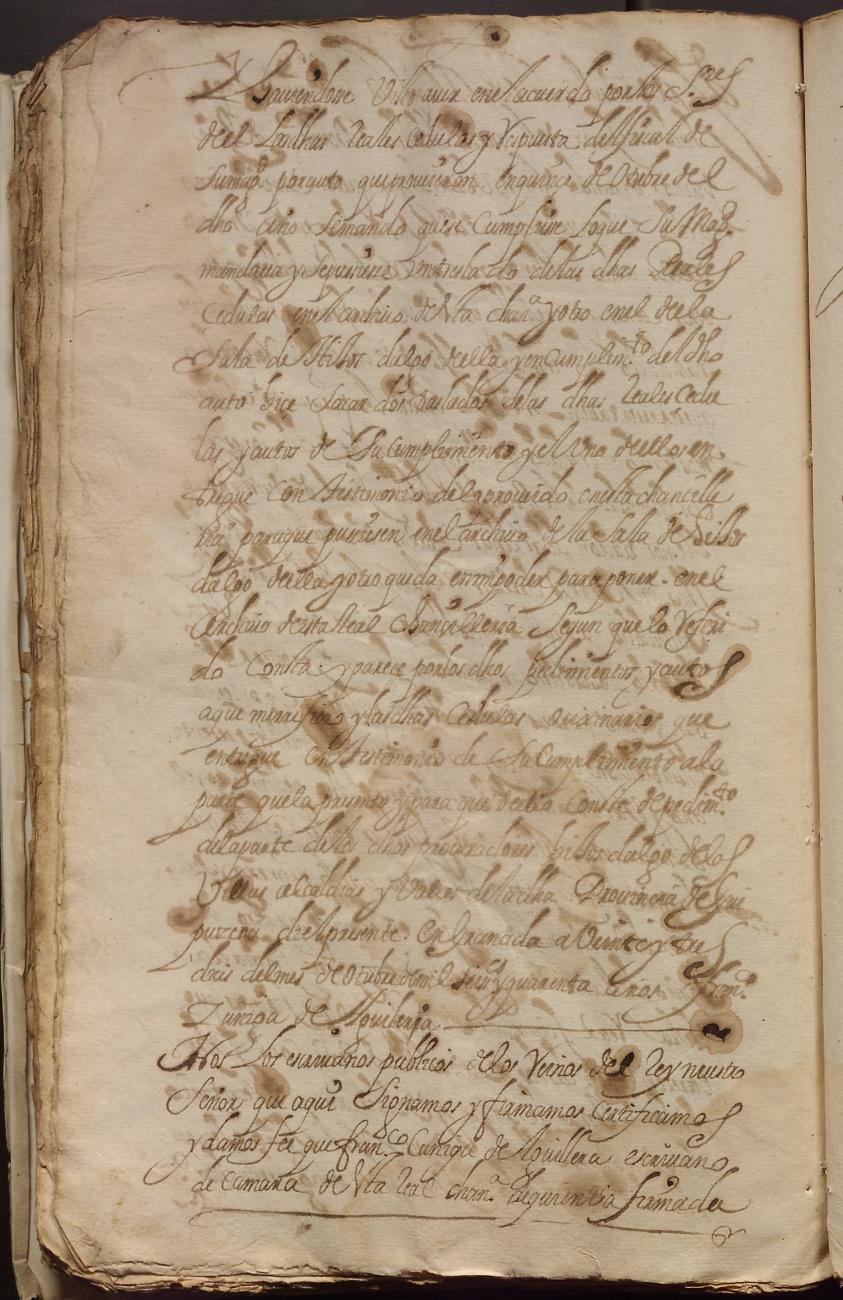 Y haviendose Visto aver en el acuerdo por los S.res
de el Las dhas Reales Cedulas y Respuesta del fiscal de
Su mag.d por auto que proveyeron en quince de Otubre del
dho año Semando que se Cumpliese Loque Su Mag.d
mandava y se pusiese Un treslado de las dhas Reales
Cedulas en el Archivo desta chan.a y otro en el de la
Sala de Hijos dalgo della y en Cumplim.to del dho
auto hice Sacar dos traslados de las dhas Reales Cedu
las y autos de Su Cumplimiento y el Uno de ellos en
tregue Con testimonio de lo proveido en esta chancille
ria para que pusiesen en el archivo de la Salla de Hijos
dalgo della y otro queda en mi poder para poner en el
Archivo desta Real Chancilleria Segun que lo Referi
do Consta y parece por los dhos pedimientos y autos
a que me refiero y las dhas Cedulas originarios que
entregue Con testimonio de Su Cumplimiento a la
parte que la presento y para que dello Conste de pedim.to
de la parte de los dhos procuradores hijos dalgo de las
Villas alcaldias y Valles de la dha Provincia de Gui
puzcoa di el presente En Granada a Veinte y tres
dias del mes de Otubre de mil seis.s y quarenta años fran.co
Zuniga de Aguilera
Nos Los escrivanos publicos de los Reinos del Rey nuestro
Señor que aqui Signamos y firmamos Certificamos
y damos fee que fran.co Cuniga de Aguillera escrivano
de Camara de Vta Real chan.a de quien Va firmada